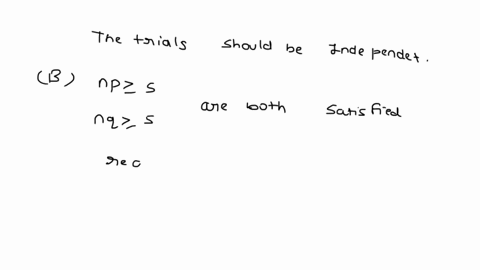 The trials should be Independet.
(B) np ≥ 5 are both satisfied
nq ≥ 5
rec